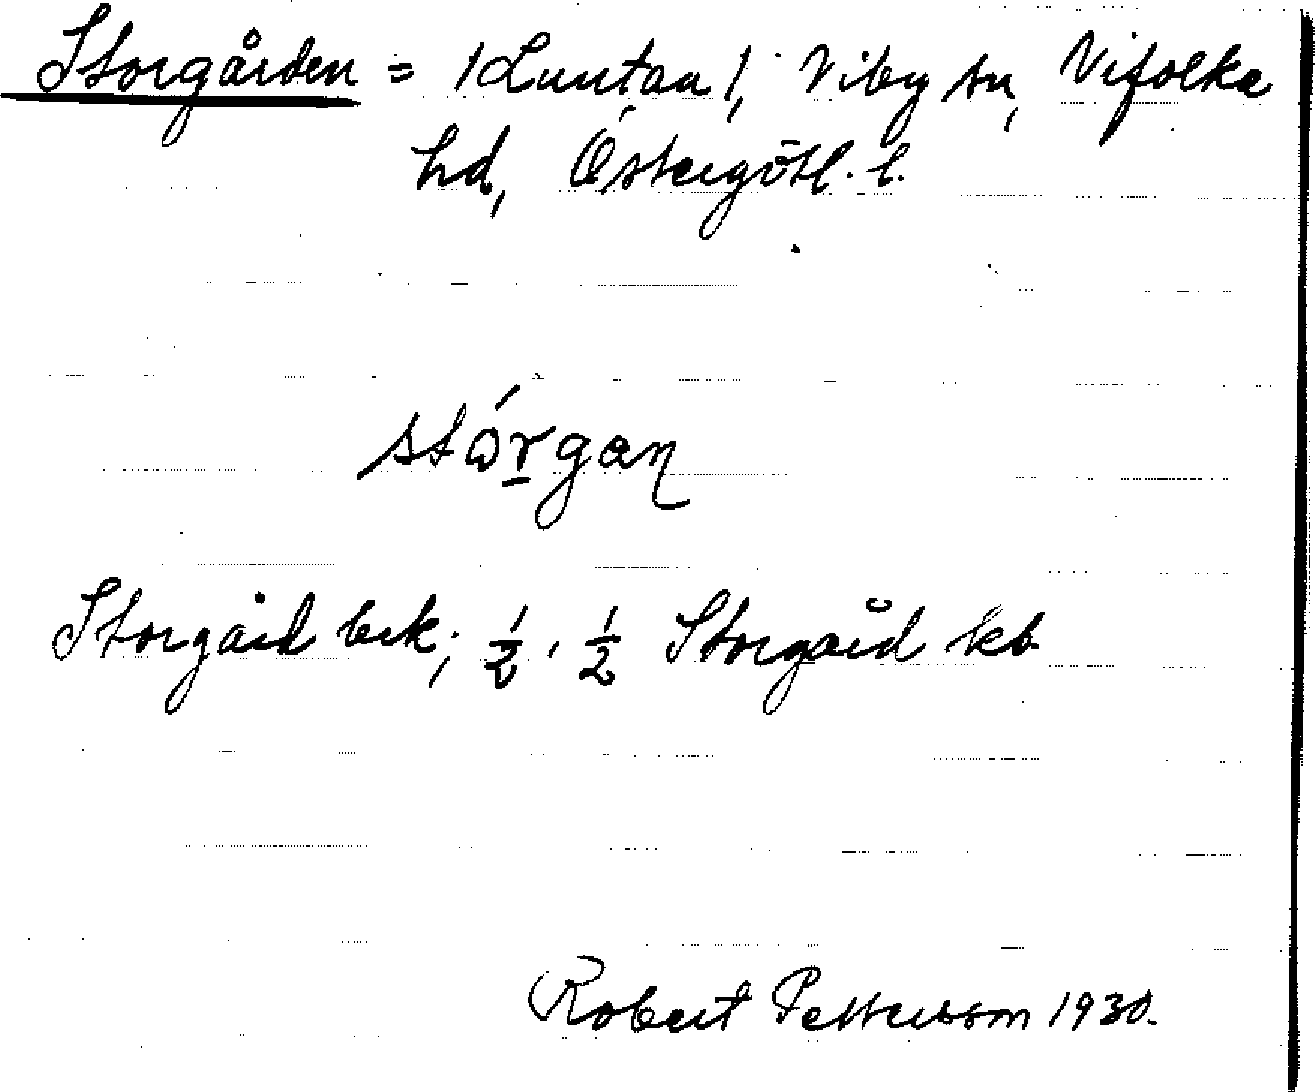 Storgården = /Luntaa/, Viby sn, Vifolka
hd, Östergötl. l.
stórgan
Storgård bek; 1/2, 1/2 Storgård kb.
Robert Pettersson 1930.